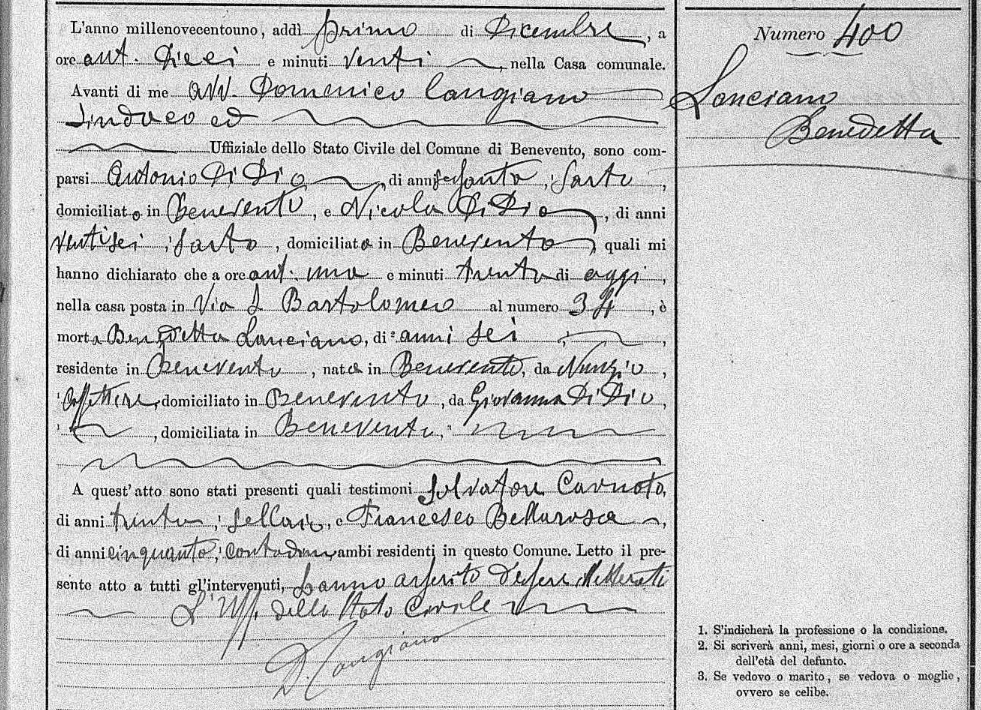 L'anno millenovecentouno, addì primo di Dicembre, a
ore ant. Dieci e minuti venti, nella Casa comunale.
Avanti di me avv. Domenico Cangiano
Sindaco ed
Uffiziale dello Stato Civile del Comune di Benevento, sono com-
parsi Antonio Di Dio, di anni sessanta, sarto,
domiciliato in Benevento, e Nicola Di Dio, di anni
ventisei, sarto, domiciliato in Benevento, quali mi
hanno dichiarato che a ore ant. una e minuti trenta di oggi,
nella casa posta in Via S. Bartolomeo al numero 34, è
morta Benedetta Lanciano, di anni sei,
residente in Benevento, nata in Benevento, da Nunzio,
domiciliato in Benevento, da Giovanna Di Dio,
, domiciliata in Benevento,
A quest'atto sono stati presenti quali testimoni Salvatore
di anni trenta, sellaio, e Francesco Bellarosa,
di anni cinquanta, contadino, ambi residenti in questo Comune. Letto il pre-
sente atto a tutti gl'intervenuti, hanno asserito d'essere illetterati
L'Uff. dello Stato Civile
D. Cangiano
Numero 400
Lanciano
Benedetta
1. S'indicherà la professione o la condizione.
2. Si scriverà anni, mesi, giorni o ore a seconda
dell'età del defunto.
3. Se vedovo o marito, se vedova o moglie,
ovvero se celibe.